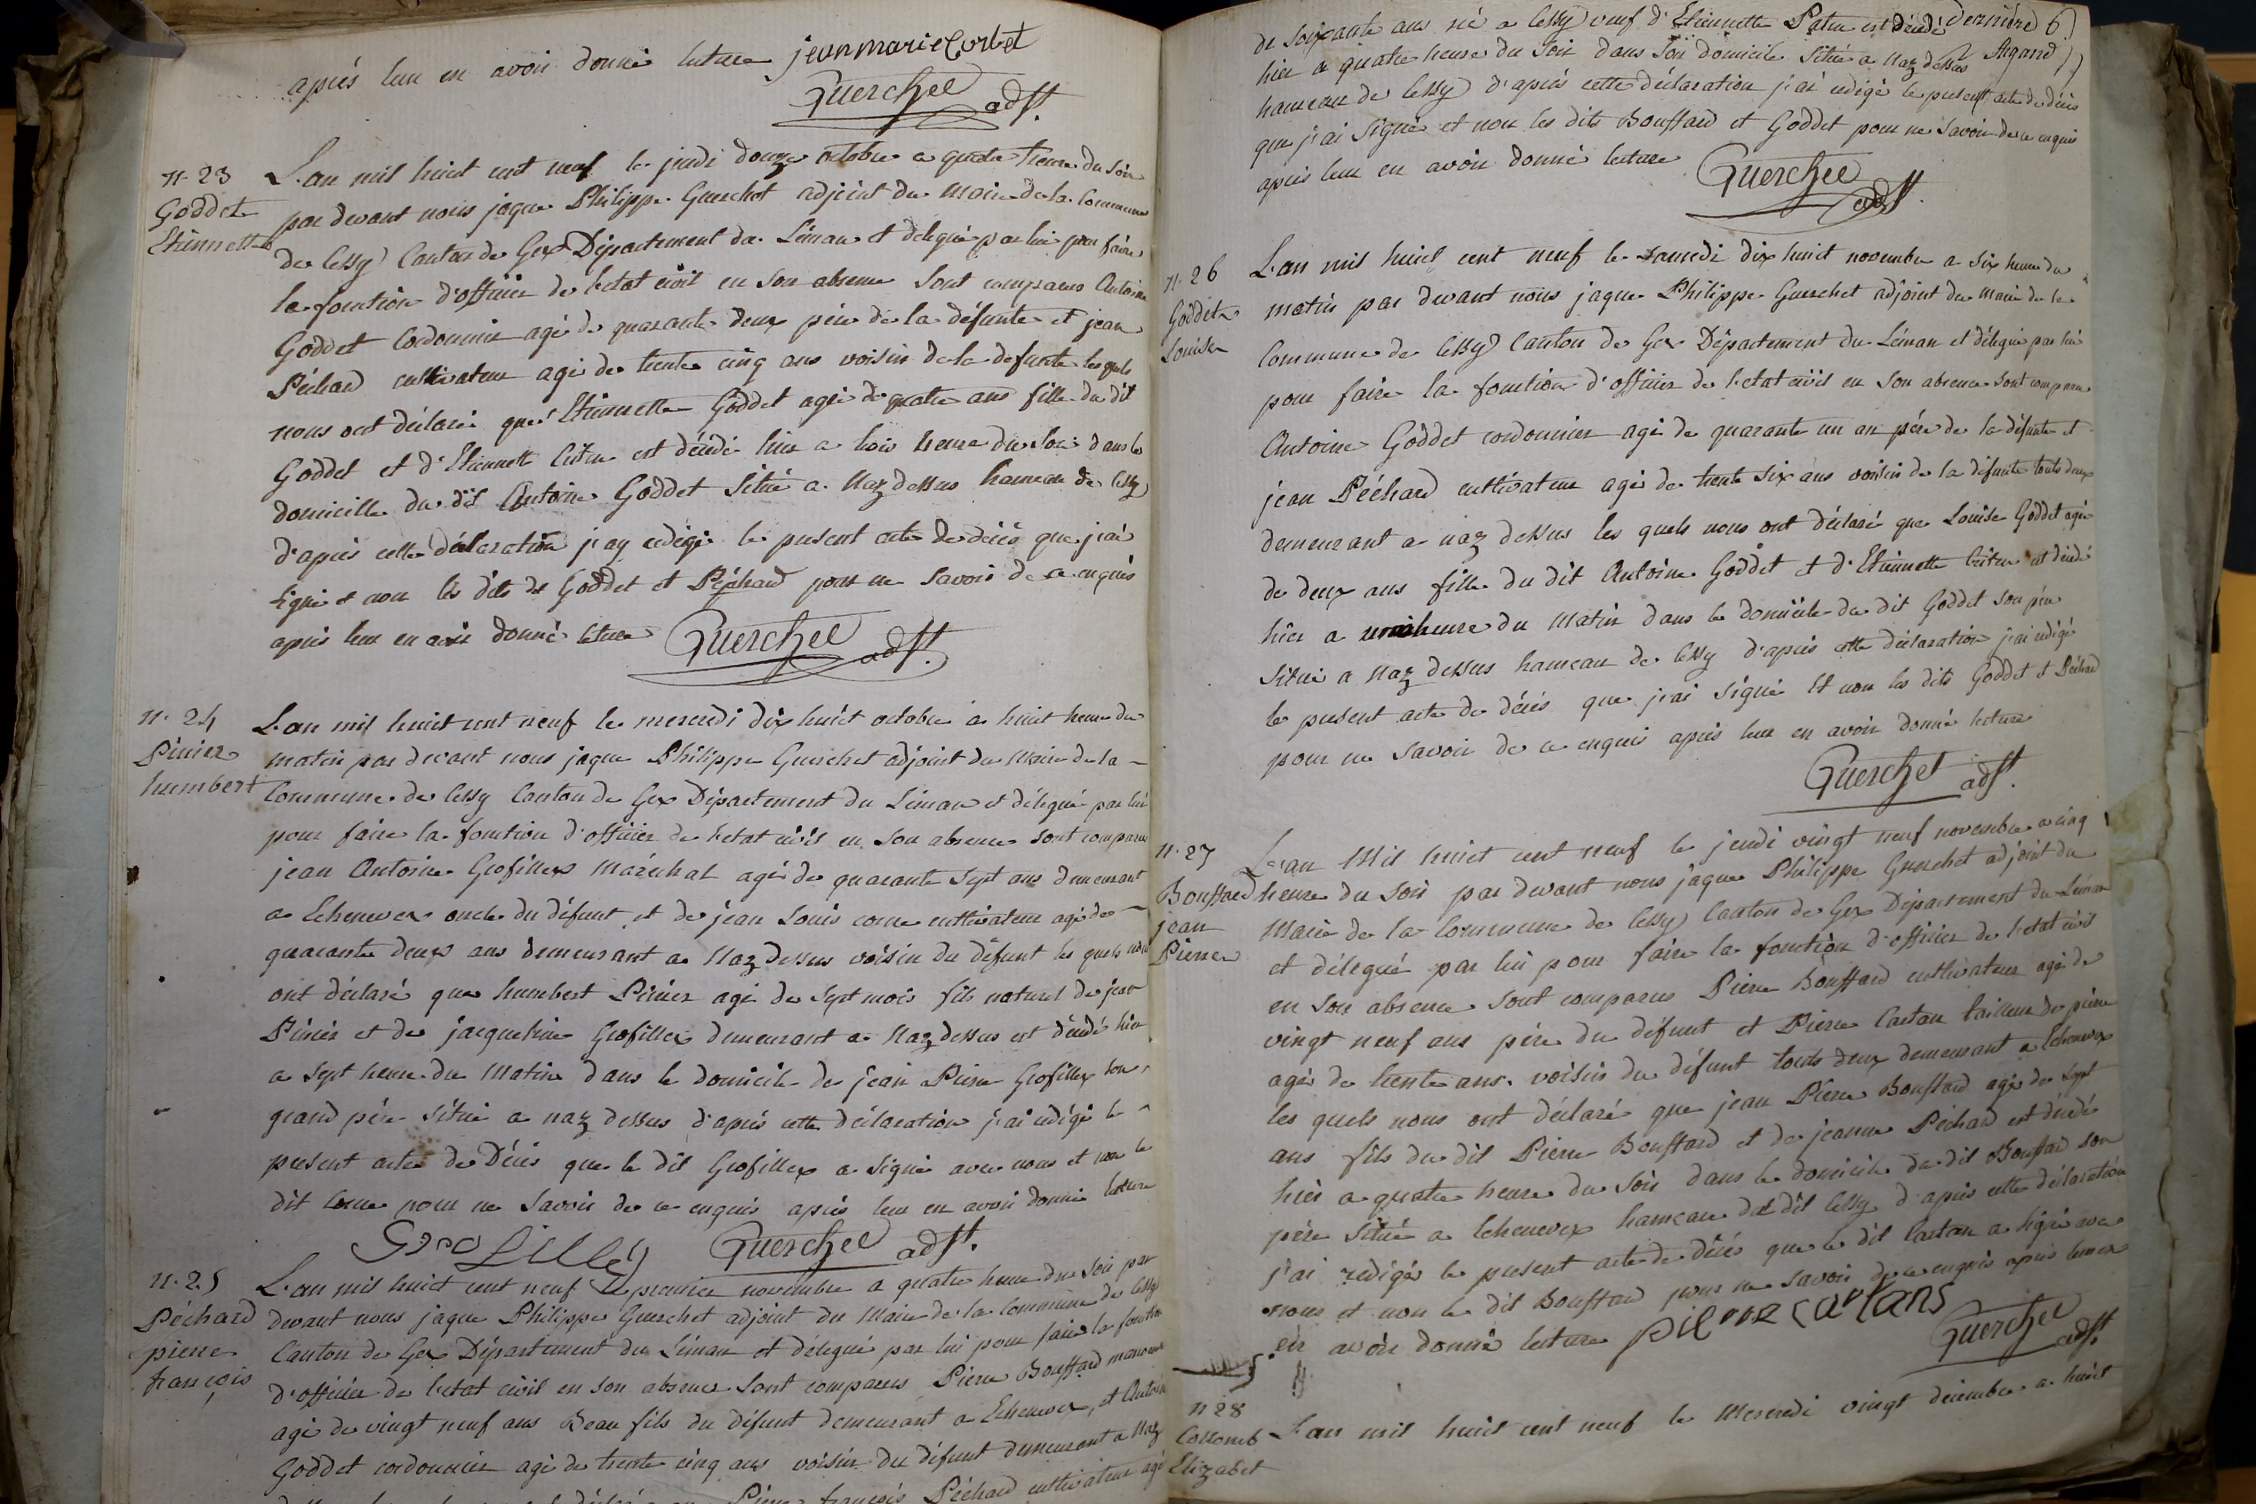 après leur en avoir donné lecture jeanmarie Corbet
Guerchet adjt.
n. 23
Goddet
Etiennette
L'an mil huict cent neuf le jeudi douze octobre a quatre heure du soir
par devant nous jaque Philippe Guerchet adjoint du maire de la commune
de Cessy Canton de Gex Département du Léman et délégué par lui pour faire
la fonction d'officier de l'etat civil en son absence sont comparus Antoine
Goddet cordonnier agé de quarante deux père de la défunte et jean
Péchard cultivateur agé de trente cinq ans voisin de la defunte les quels
nous ont déclaré que Etiennette Goddet agée de quatre ans fille du dit
Goddet et d'Etiennette est décédé hier a trois heure du soir dans le
domicille du dit Antoine Goddet situé a Naz dessus hameau de Cessy
d'après cette déclaration j'ay redigé le present acte de décès que j'ai
signé et non les dits Goddet et Péchard pour ne savoir de ce enquis
après leur en avoir donné lecture Guerchet adjt.
n. 24
Pinier
humbert
L'an mil huict cent neuf le mercredi dix huict octobre a huict heure du
matin par devant nous jaque Philippe Guerchet adjoint du Maire de la
Commune de Cessy Canton de Gex Département du Léman et délégué par lui
pour faire la fonction d'officier de l'etat civil en son absence sont comparus
jean Antoine Grofillex Maréchal agé de quarante sept ans demeurant
a Echenevex oncle du défunt et de jean Louis corne cultivateur agé de
quarante deux ans demeurant a Naz dessus voisin du défunt les quels nous
ont déclaré que humbert Pinier agé de sept mois fils naturel de jean
Pinier et de jacqueline Grofillex demeurant a Naz dessus est décédé hier
a sept heure du Matin dans le domicile de jean Pierre Grofillex son
grand père situé a naz dessus d'après cette déclaration j'ai redigé le
present acte de Décès que le dit Grofillex a signé avec nous et non le
dit Corne pour ne savoir de ce enquis après leur en avoir donné lecture
GroFilley Guerchet adjt.
n. 25
Péchard
pierre
françois
L'an mil huict cent neuf le premier novembre a quatre heure du soir par
devant nous jaque Philippe Guerchet adjoint du Maire de la Commune de Cessy
Canton de Gex Département du Léman et délégué par lui pour faire la fonction
d'officier de l'etat civil en son absence sont comparus Pierre Bouffard
agé de vingt neuf ans Beau fils du défunt demeurant a Echenevex, et Antoine
Goddet cordonnier agé de trente cinq ans voisin du défunt demeurant a Naz
Pierre françois Péchard cultivateur agé
de soixante ans né a Cessy veuf d'Etiennette est décédé Dernière 6
hier a quatre heure du soir dans son domicile situé a Naz dessus
hameau de Cessy d'après cette déclaration j'ai redigé le present acte de décès
que j'ai signé et non les dits Bouffard et Goddet pour ne savoir de ce enquis
après leur en avoir donné lecture Guerchet
adjt.
n. 26
Goddet
Louise
L'an mil huict cent neuf le samedi dix huict novembre a six heure du
matin par devant nous jaque Philippe Guerchet adjoint du Maire de la
Commune de Cessy Canton de Gex Département du Léman et délégué par lui
pour faire la fonction d'officier de l'etat civil en son absence sont comparu
Antoine Goddet cordonnier agé de quarante un an père de la défunte et
jean Péchard cultivateur agé de trente six ans voisin de la défunte touts deux
demeurant a naz dessus les quels nous ont déclaré que Louise Goddet agée
de deux ans fille du dit Antoine Goddet et d'Etiennette est décédé
hier a heure du Matin dans le domicile du dit Goddet son père
situé a Naz dessus hameau de Cessy d'après cette déclaration j'ai redigé
le present acte de décès que j'ai signé et non les dits Goddet et Péchard
pour ne savoir de ce enquis après leur en avoir donné lecture
Guerchet adjt.
n. 27
Bouffard
jean
Pierre
L'an Mil huict cent neuf le jeudi vingt neuf novembre a cinq
heure du soir par devant nous jaque Philippe Guerchet adjoint du
Maire de la Commune de Cessy Canton de Gex Département du Léman
et délégué par lui pour faire la fonction d'officier de l'etat civil
en son absence sont comparus Pierre Bouffard cultivateur agé de
vingt neuf ans père du défunt et Pierre Cartan tailleur de pierre
agé de trente ans voisin du défunt touts deux demeurant a Echenevex
les quels nous ont déclaré que jean Pierre Bouffard agé de sept
ans fils du dit Pierre Bouffard et de jeanne Péchard est décédé
hier a quatre heure du soir dans le domicile du dit Bouffard son
père situé a Echenevex hameau du dit Cessy d'après cette déclaration
j'ai redigés le present acte de décès que le dit Cartan a signé avec
nous et non le dit Bouffard pour ne savoir de ce enquis après leur en
en avoir donné lecture pierre cartans
Guerchet adjt.
n 28
Collomb
Elizabet
L'an mil huict cent neuf le Mercredi vingt décembre a huict